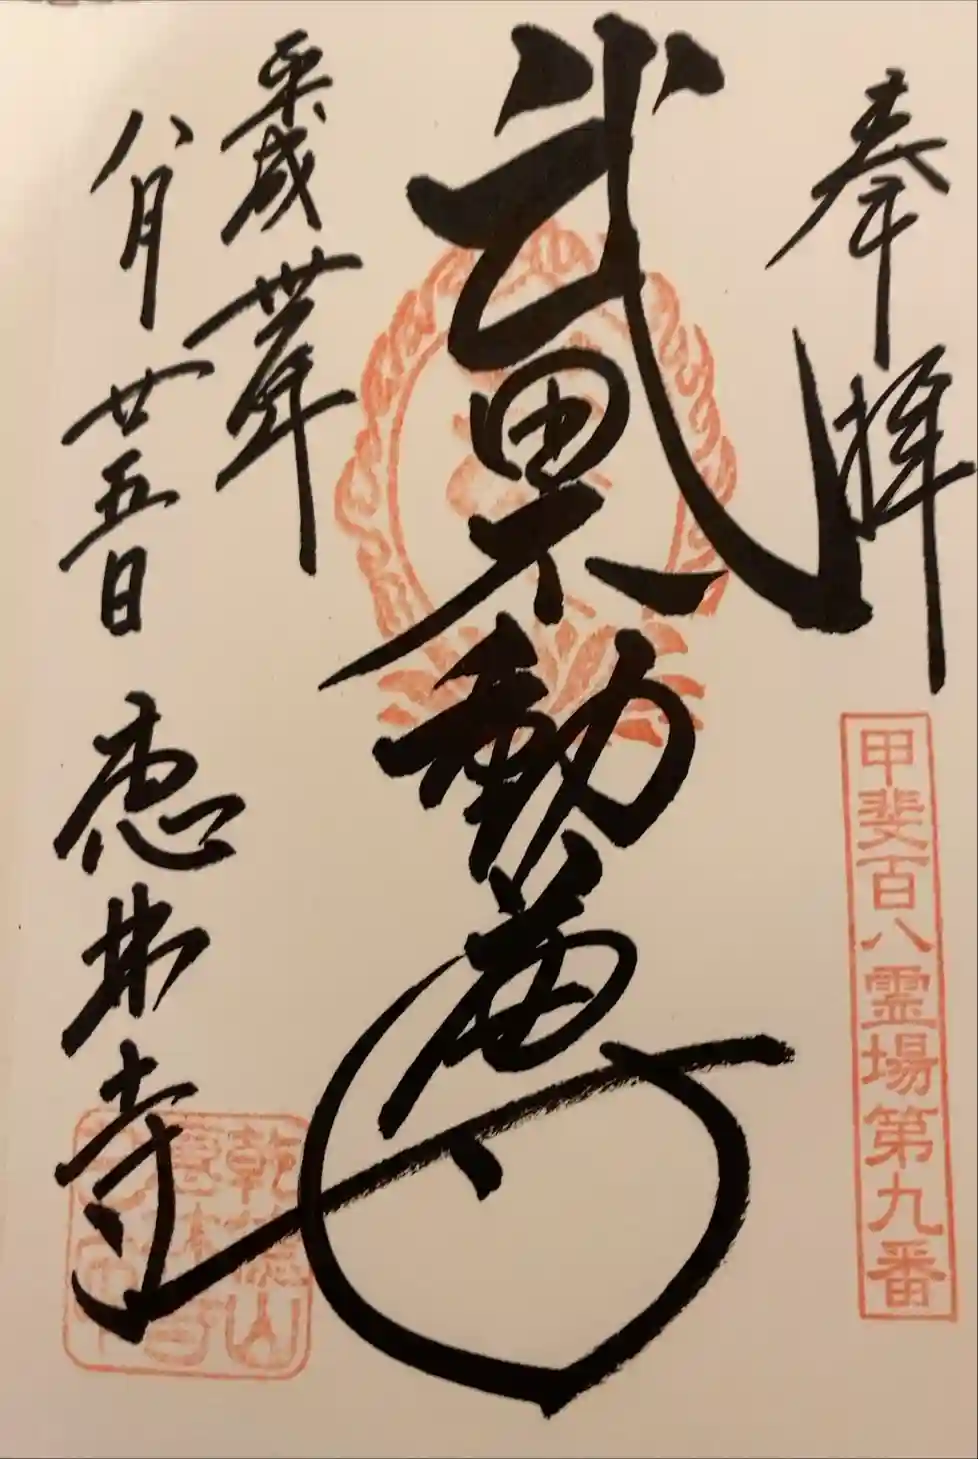 奉拝
甲斐百八霊場第九番
武田不動尊
平成丗年
八月廿五日 恵林寺
乾徳山
恵林